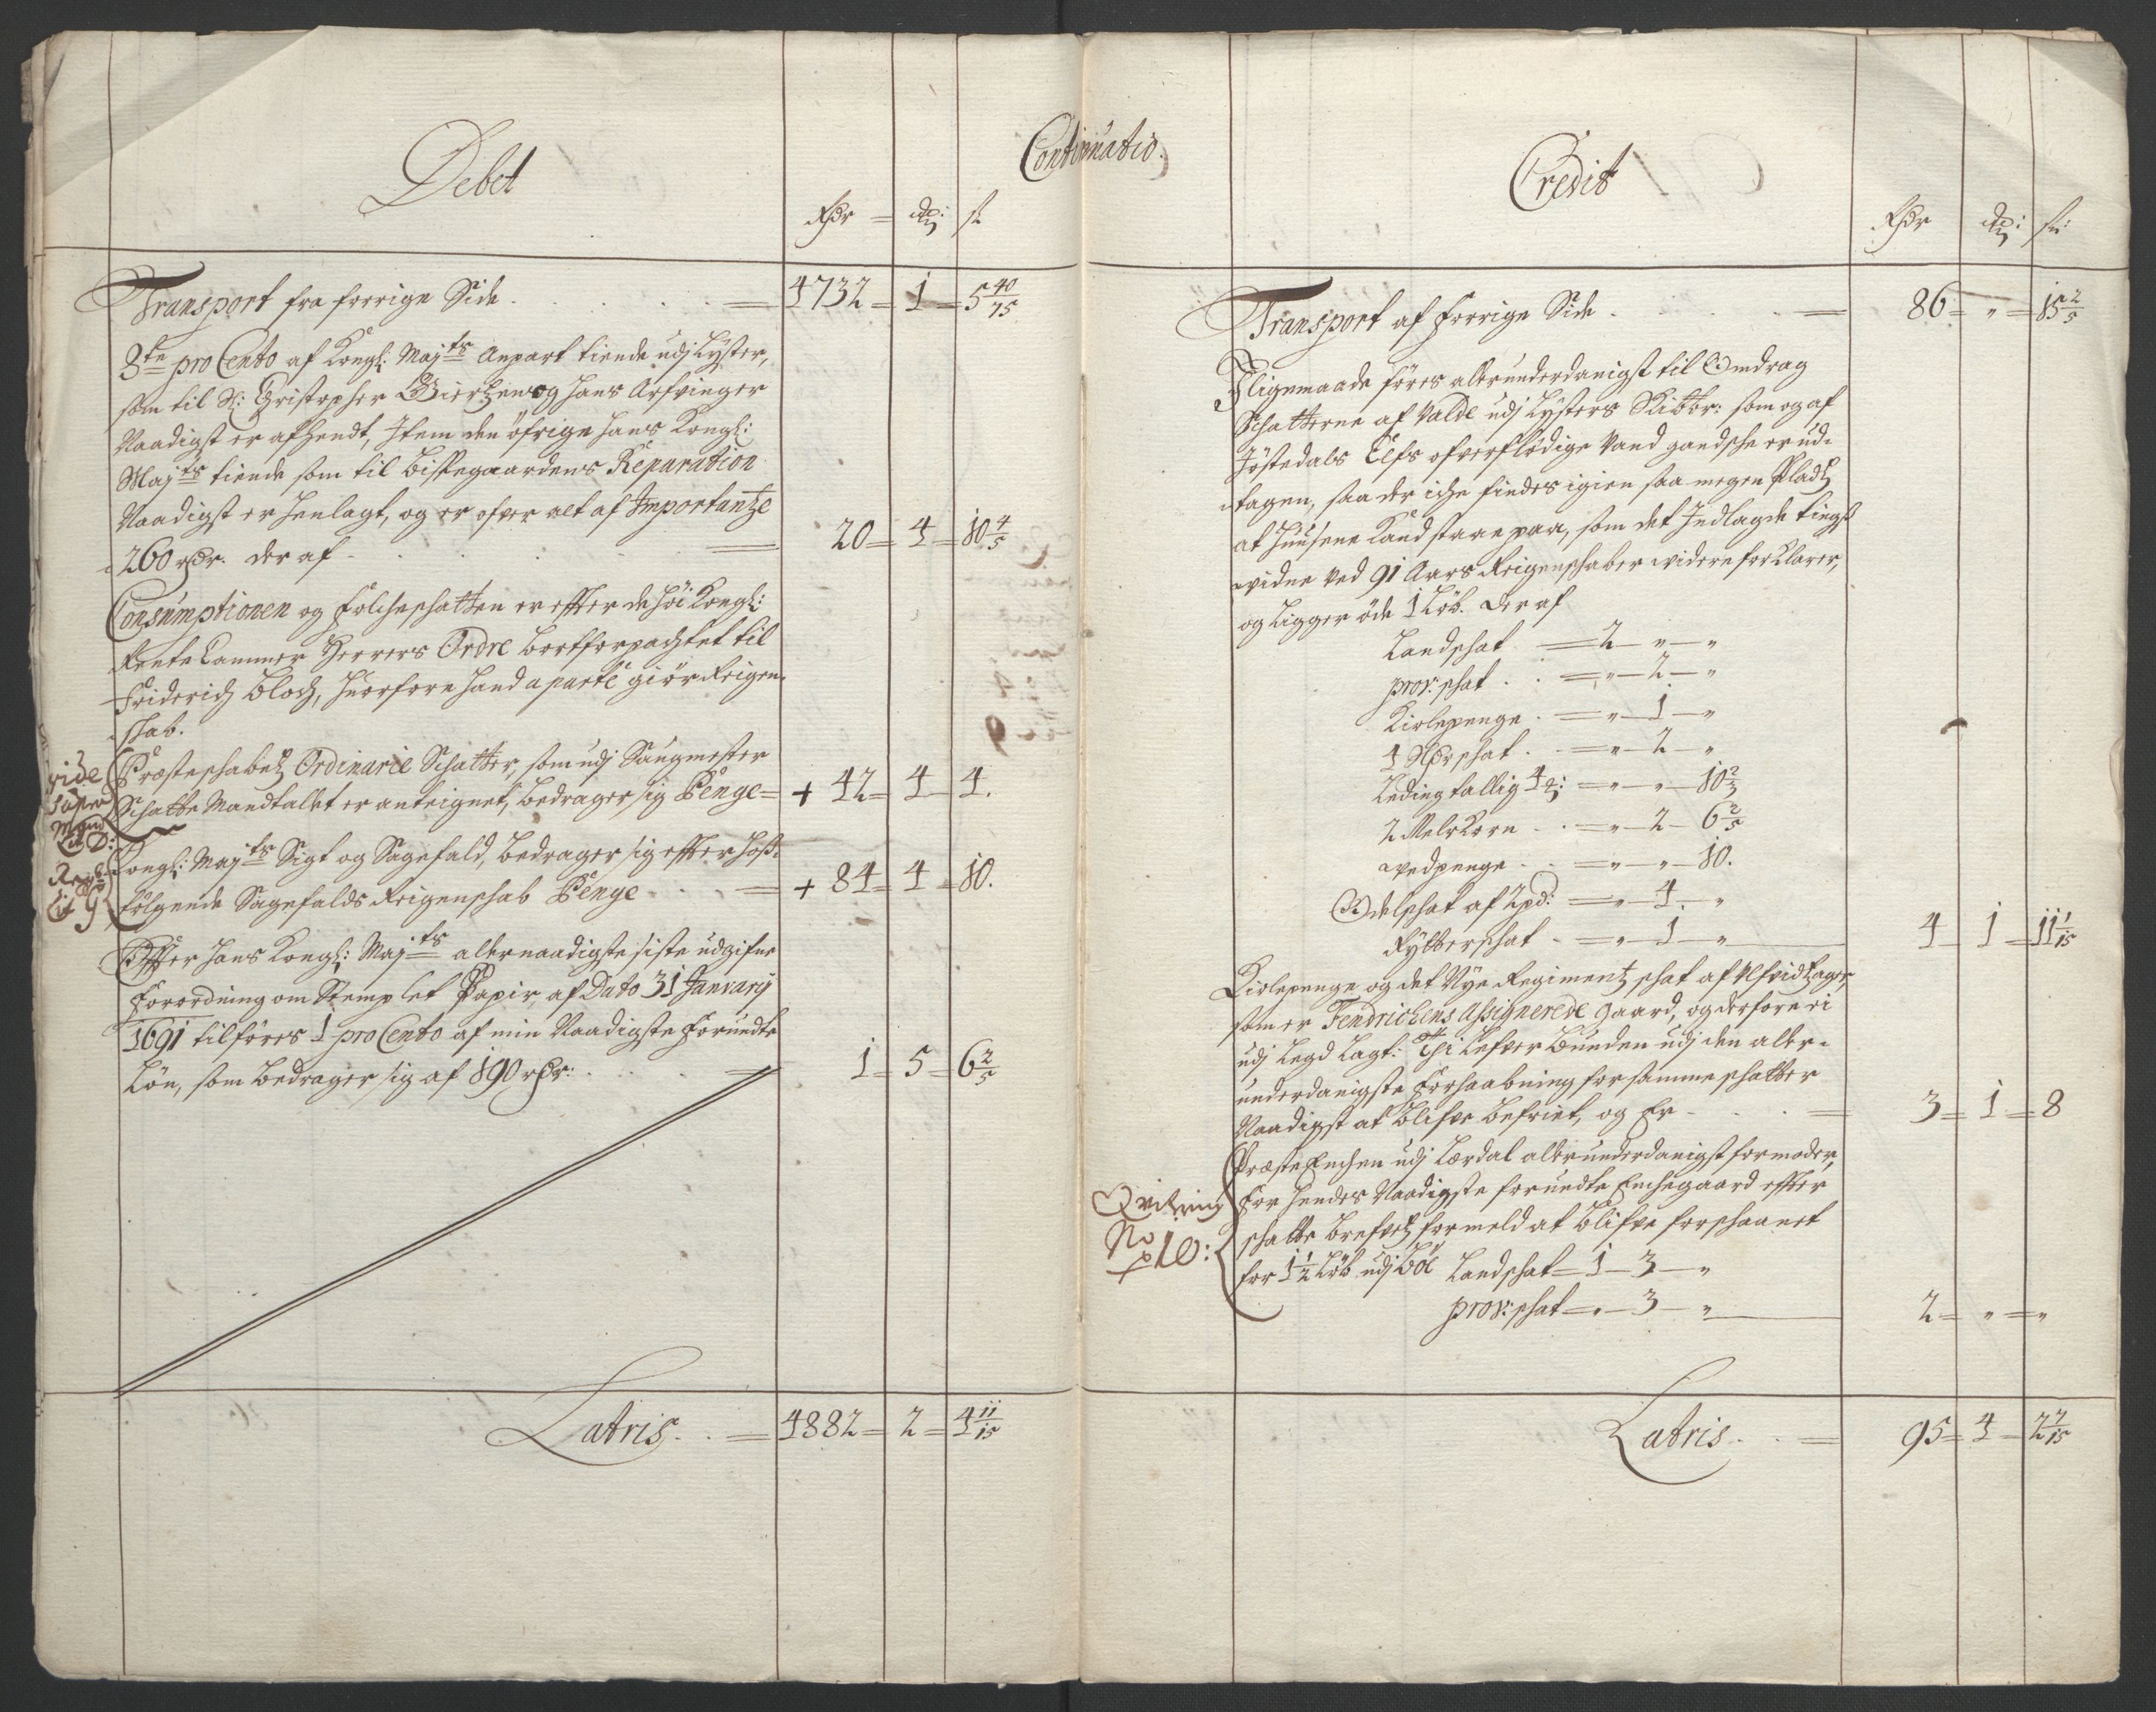 Continuatio.
Debet
Rdr = [mk]: ß
Transport fra forrige Side . . . . = 4732 = 1 = 5 40/75
8te pro Cento af Kongl: Majts Anpart tiende udj Lyster,
som til Sl: Christopher Giertzen og hans Arfvinger
Naadigst er afhendt, Item den öfrige hans Kongl:
Majts tiende som til Bispegaardens Reparation
Naadigst er henlagt, og er ofver alt af Importantze
260 rdr. der af . . . = 20 = 4 = 10 4/5
Consumptionen og Folcheschatten er effter de höi Kongl:
Rente Cammer Herrers Ordre bortforpachtet til
Friderich Bloch, huorfore hand aparte giör Reigen-
skab.
vide
Super
Mand
Lit D:
Præsteskabetz Ordinarie Schatter, som udj Saugmester
Schatte Mandtallet er anteignet, bedrager sig Penge = + 42 = 4 = 4.
Lit G
Kongl: Majts Sigt og Sagefald, bedrager sig effter hoß-
fölgende Sagefalds Reigenschab Penge . . . = + 84 = 4 = 10.
Effter Hans Kongl: Majts allernaadigste siste udgifne
Forordning om Stemplet Papir, af Dato 31 January
1691 tilföres 1 pro Cento af min Naadigste forundte
Lön, som bedrager sig af 190 rdr: . . . = 1 = 5 = 6 2/5
Latris . . = 4882 = 2 = 4 11/15
Credit
Rdr [mk]: ß:
Transport af forrige Side . . . . = 86 = " = 15 2/5
Iligemaade föres allerunderdanigst til Omdrag
Schatterne af Valde udj Lysters Skibbr: som og af
Jöstedals Elfs ofverflödige Vand gandsche er ud-
tagen, saa der iche findes igien saa megen Pladtz
at Huusene kand staae paa, som det Indlagde tings
widne ved 91 Aars Reigenschaber widere forklarer,
og ligger öde 1 Löb. Der af
Landschat = 2 — " — "
prov: schat . . = " — 2 — "
Kirlepenge . = " — 1 — "
4 Rdr schat . . = " — 2 — "
Leding tallig 4 = " — " — 10 2/3
2 Mels Korn . . = " — 2 — 6 2/5
vedpenge . . = " — " — 10.
Odelschat af 2 pd: = " — 4 . "
Rytterschat . = " — 1 — " 4 — 1 = 11 1/15
Kirlepenge og det Nye Regimentz schat af Alfvidtzager,
som er Fendrichens Assignerede gaard, og derfore ei
udj Legd lagt: Thi lefver Bunden udj den aller-
underdanigste Forhaabning for samme schatter
Naadigst at blifve befriet, og Er . . . = 3 = 1 = 8
Qvitering
No 10:
Præste Enchen udj Lærdal allerunderdanigst formoder,
for hendes Naadigste forundte Enchegaard effter
schatte brefvetz formeld at blifve forschaanet
for 1 1/2 Löb udj Böe Landschat = 1 — 3 — "
prov: schat = " — 3 — " 2 = " = "
Latris . . = 95 = 4 = 2 7/15